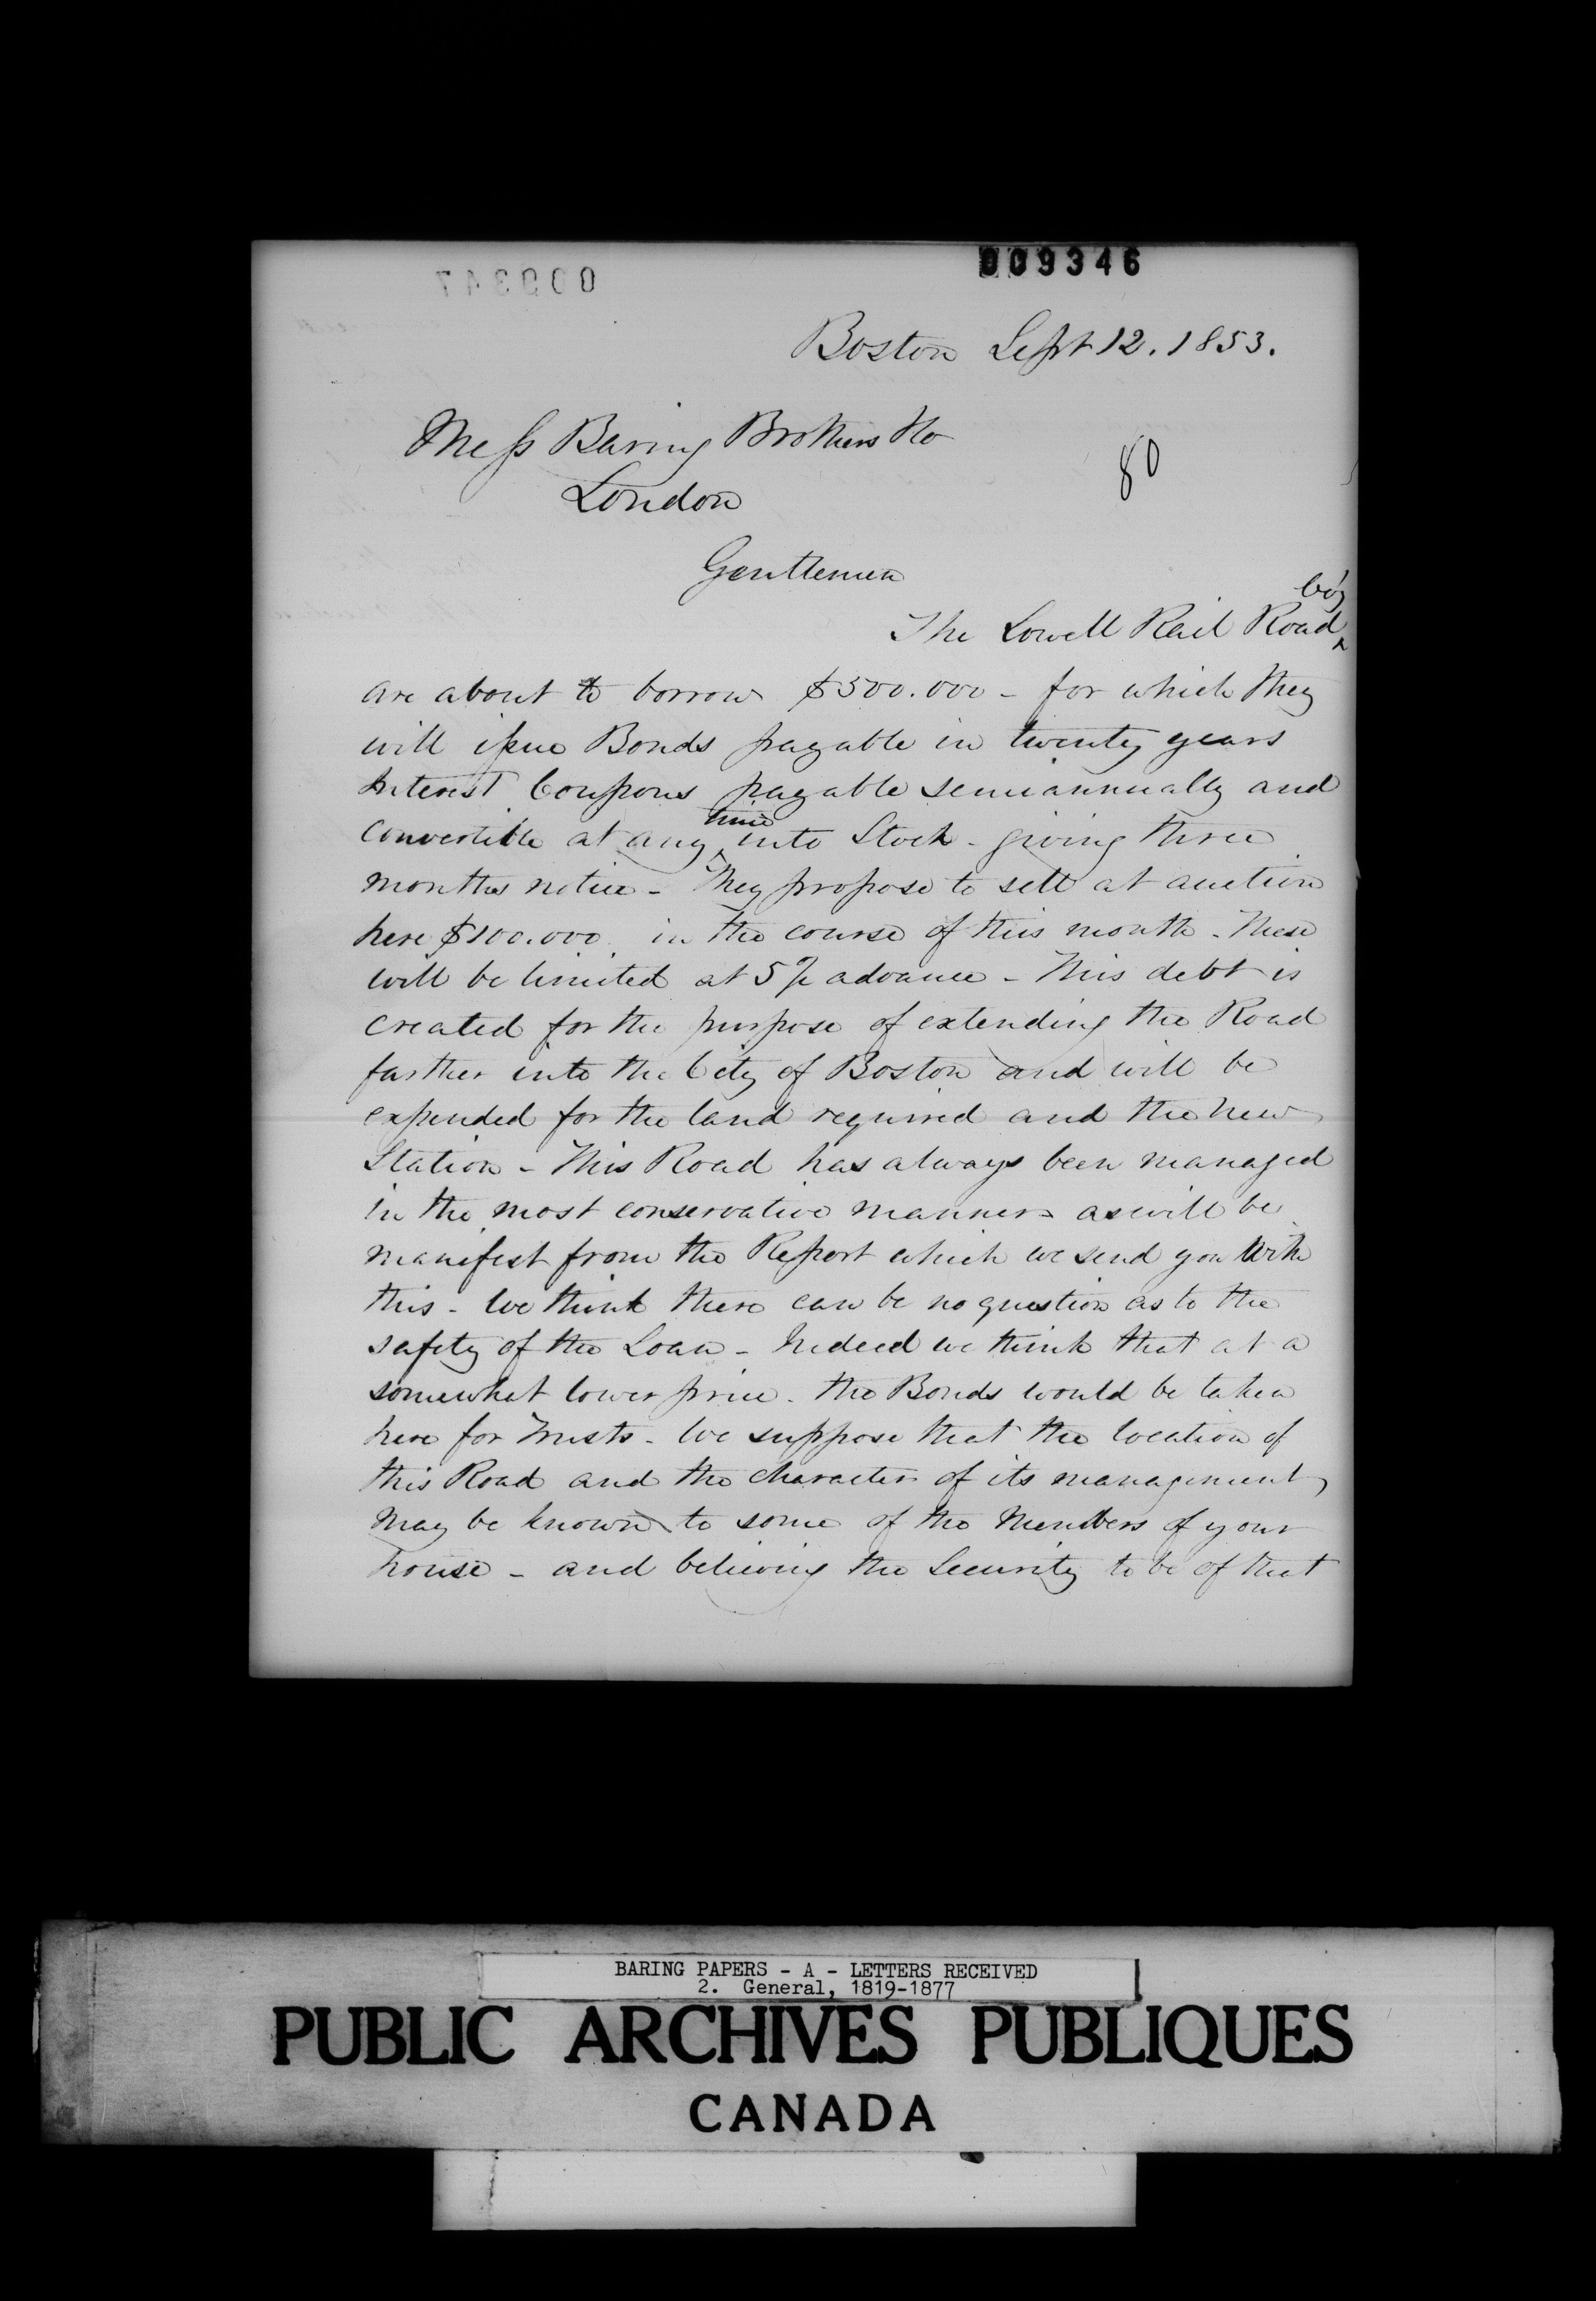 009346
000347
Boston Sept 12. 1853.
Mess Baring Brothers & Co
80
London
Gentlemen
The Lowell Rail Road Co'y
are about to borrow $500.000 - for which they
will issue Bonds payable in twenty years
Interest Coupons payable semiannually and
convertible at any time into Stock - giving three
months notice - They propose to sell at auction
here $100.000 in the course of this month - These
will be limited at 5% advance - This debt is
created for the purpose of extending the Road
farther into the City of Boston and will be
expended for the land required and the new
Station - This Road has always been managed
in the most conservative manner as will be
manifest from the Report which we send you with
this - We think there can be no question as to the
safety of the Loan - Indeed we think that at a
somewhat lower price - the Bonds would be taken
here for Trusts - We suppose that the location of
this Road and the character of its management
may be known to some of the Members of your
house - and believing the Security to be of that
BARING PAPERS - A - LETTERS RECEIVED
2. General, 1819-1877
PUBLIC ARCHIVES PUBLIQUES
CANADA